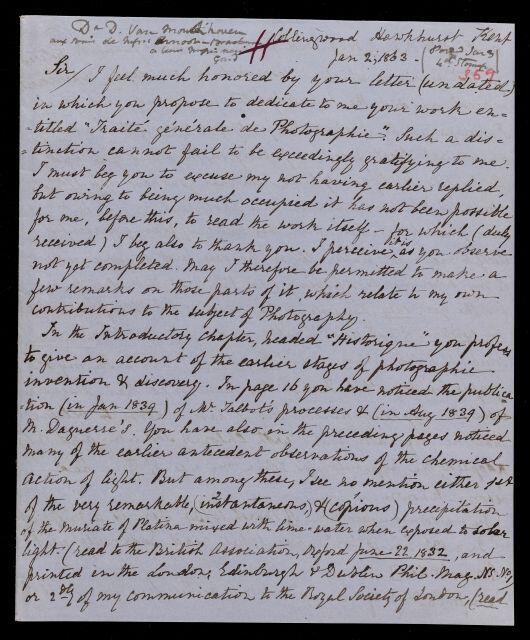 Dr D. Van Monckhoven
aux soins de
Gand
Collingwood Hawkhurst Kent
Jan 2, 1863.
4d Stamp
359
Sir / I feel much honored by your letter (undated)
in which you propose to dedicate to me your work en-
-titled "Traité générale de Photographie". Such a dis-
-tinction cannot fail to be exceedingly gratifying to me.
I must beg you to excuse my not having earlier replied,
but owing to being much occupied it has not been possible
for me, before this, to read the work itself - for which (duly
received) I beg also to thank you. I perceive it is, as you observe
not yet completed. May I therefore be permitted to make a
few remarks on those parts of it, which relate to my own
contributions to the subject of Photography.
In the Introductory chapter, headed "Historique" you profess
to give an account of the earlier stages of photographic
invention & discovery. In page 16 you have noticed the publica
-tion (in Jan 1839) of Mr Talbot's processes & (in Aug 1839) of
M. Daguerre's. You have also in the preceding pages noticed
many of the earlier antecedent observations of the chemical
action of light. But among these, I see no mention either 1st
of the very remarkable, (instantaneous, & copious) precipitation
of the Muriate of Platina mixed with lime-water when exposed to solar
light (read to the British Association, Oxford June 22 1832, and
printed in the London, Edinburgh & Dublin Phil. Mag. NS. No 1
or 2dly of my communication to the Royal Society of London, (read